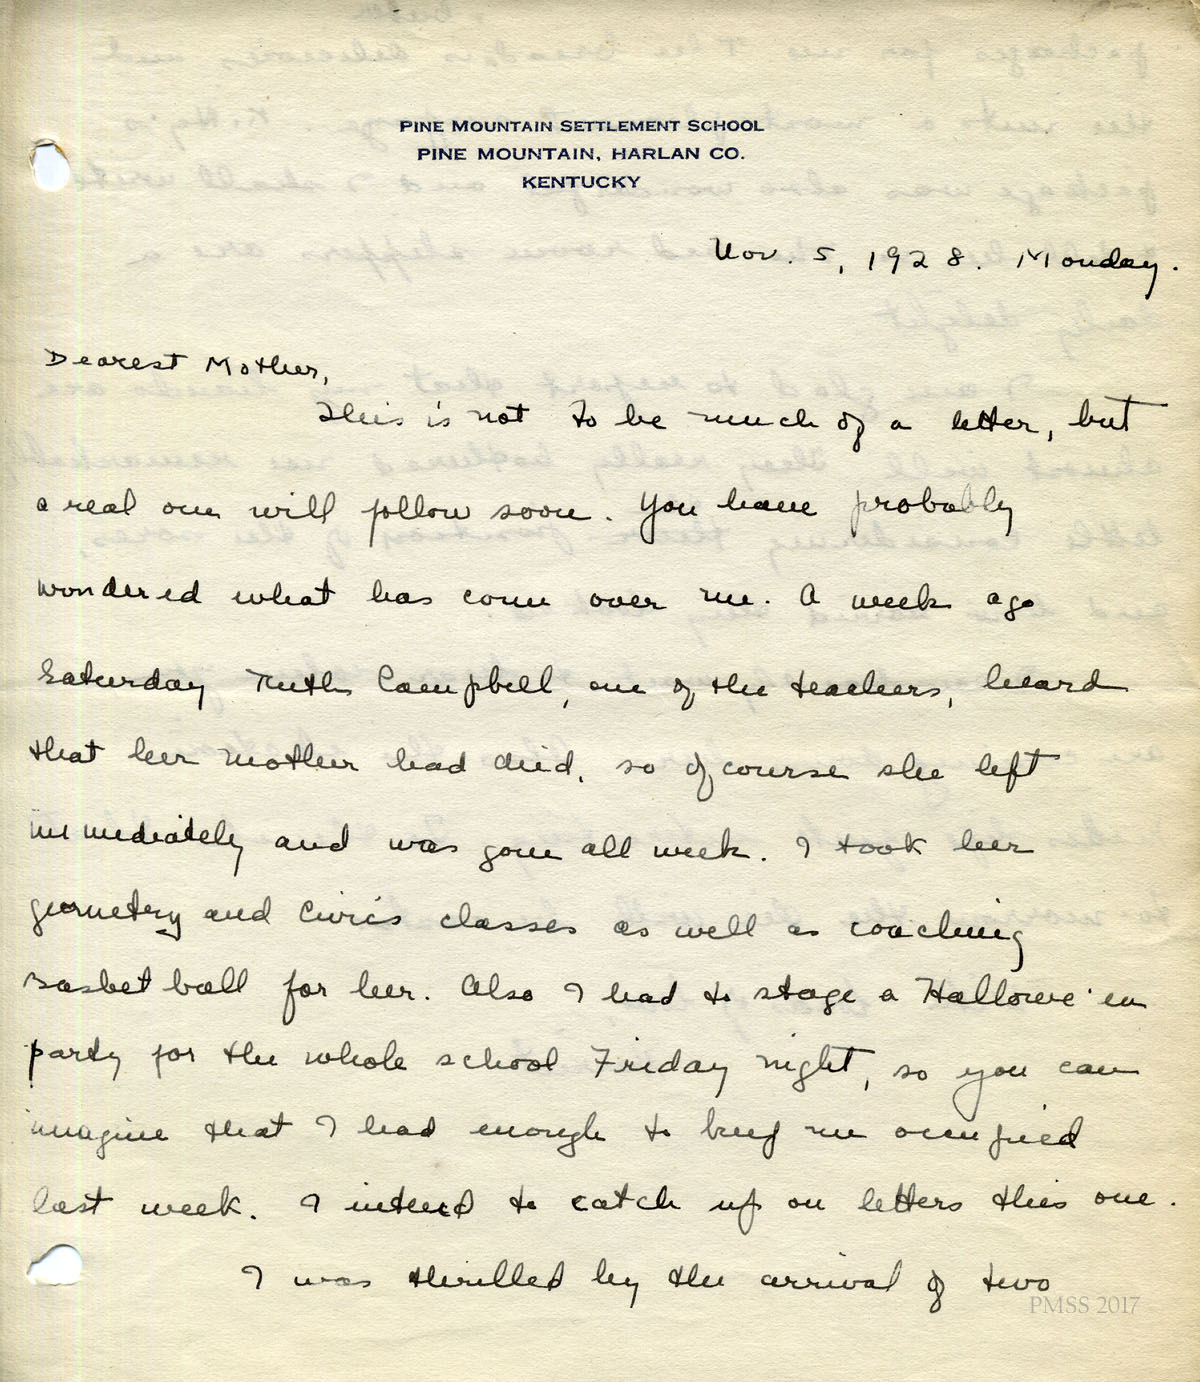 PINE MOUNTAIN SETTLEMENT SCHOOL
PINE MOUNTAIN, HARLAN CO.
KENTUCKY
Nov. 5, 1928. Monday.
Dearest Mother,
This is not to be much of a letter, but
a real one will follow soon. You have probably
wondered what has come over me. A week ago
Saturday Ruth Campbell, one of the teachers, heard
that her mother had died, so of course she left
immediately and was gone all week. I took her
geometry and Civics classes as well as coaching
basket ball for her. Also I had to stage a Hallowe'en
party for the whole school Friday night, so you can
imagine that I had enough to keep me occupied
last week. I intend to catch up on letters this one.
I was thrilled by the arrival of two
PMSS 2017